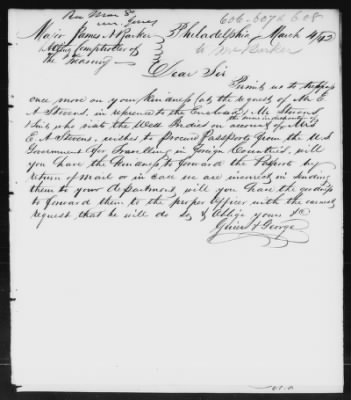 606-607 & 608
Major James Parker Philadelphia March 4/92
Acting Comptroller of to Mr Parker
The Treasury
Dear Sir
Permit us to trespass
once more on your kindness (at the request of Mr E
A Stevens, in reference to the Enclosed) Mr Stevens
& Lady who visits the West Indies on account of Mrs
E A Stevens, wishes to procure Passports from the U S
Government for Travelling in Foreign Countries, will
you have the kindness to forward the Passport by
return of mail or in case we are incorrect in sending
them to your department, will you have the goodness
to forward them to the proper officer with the earnest
request that he will do so, & Oblige yours &c
& George